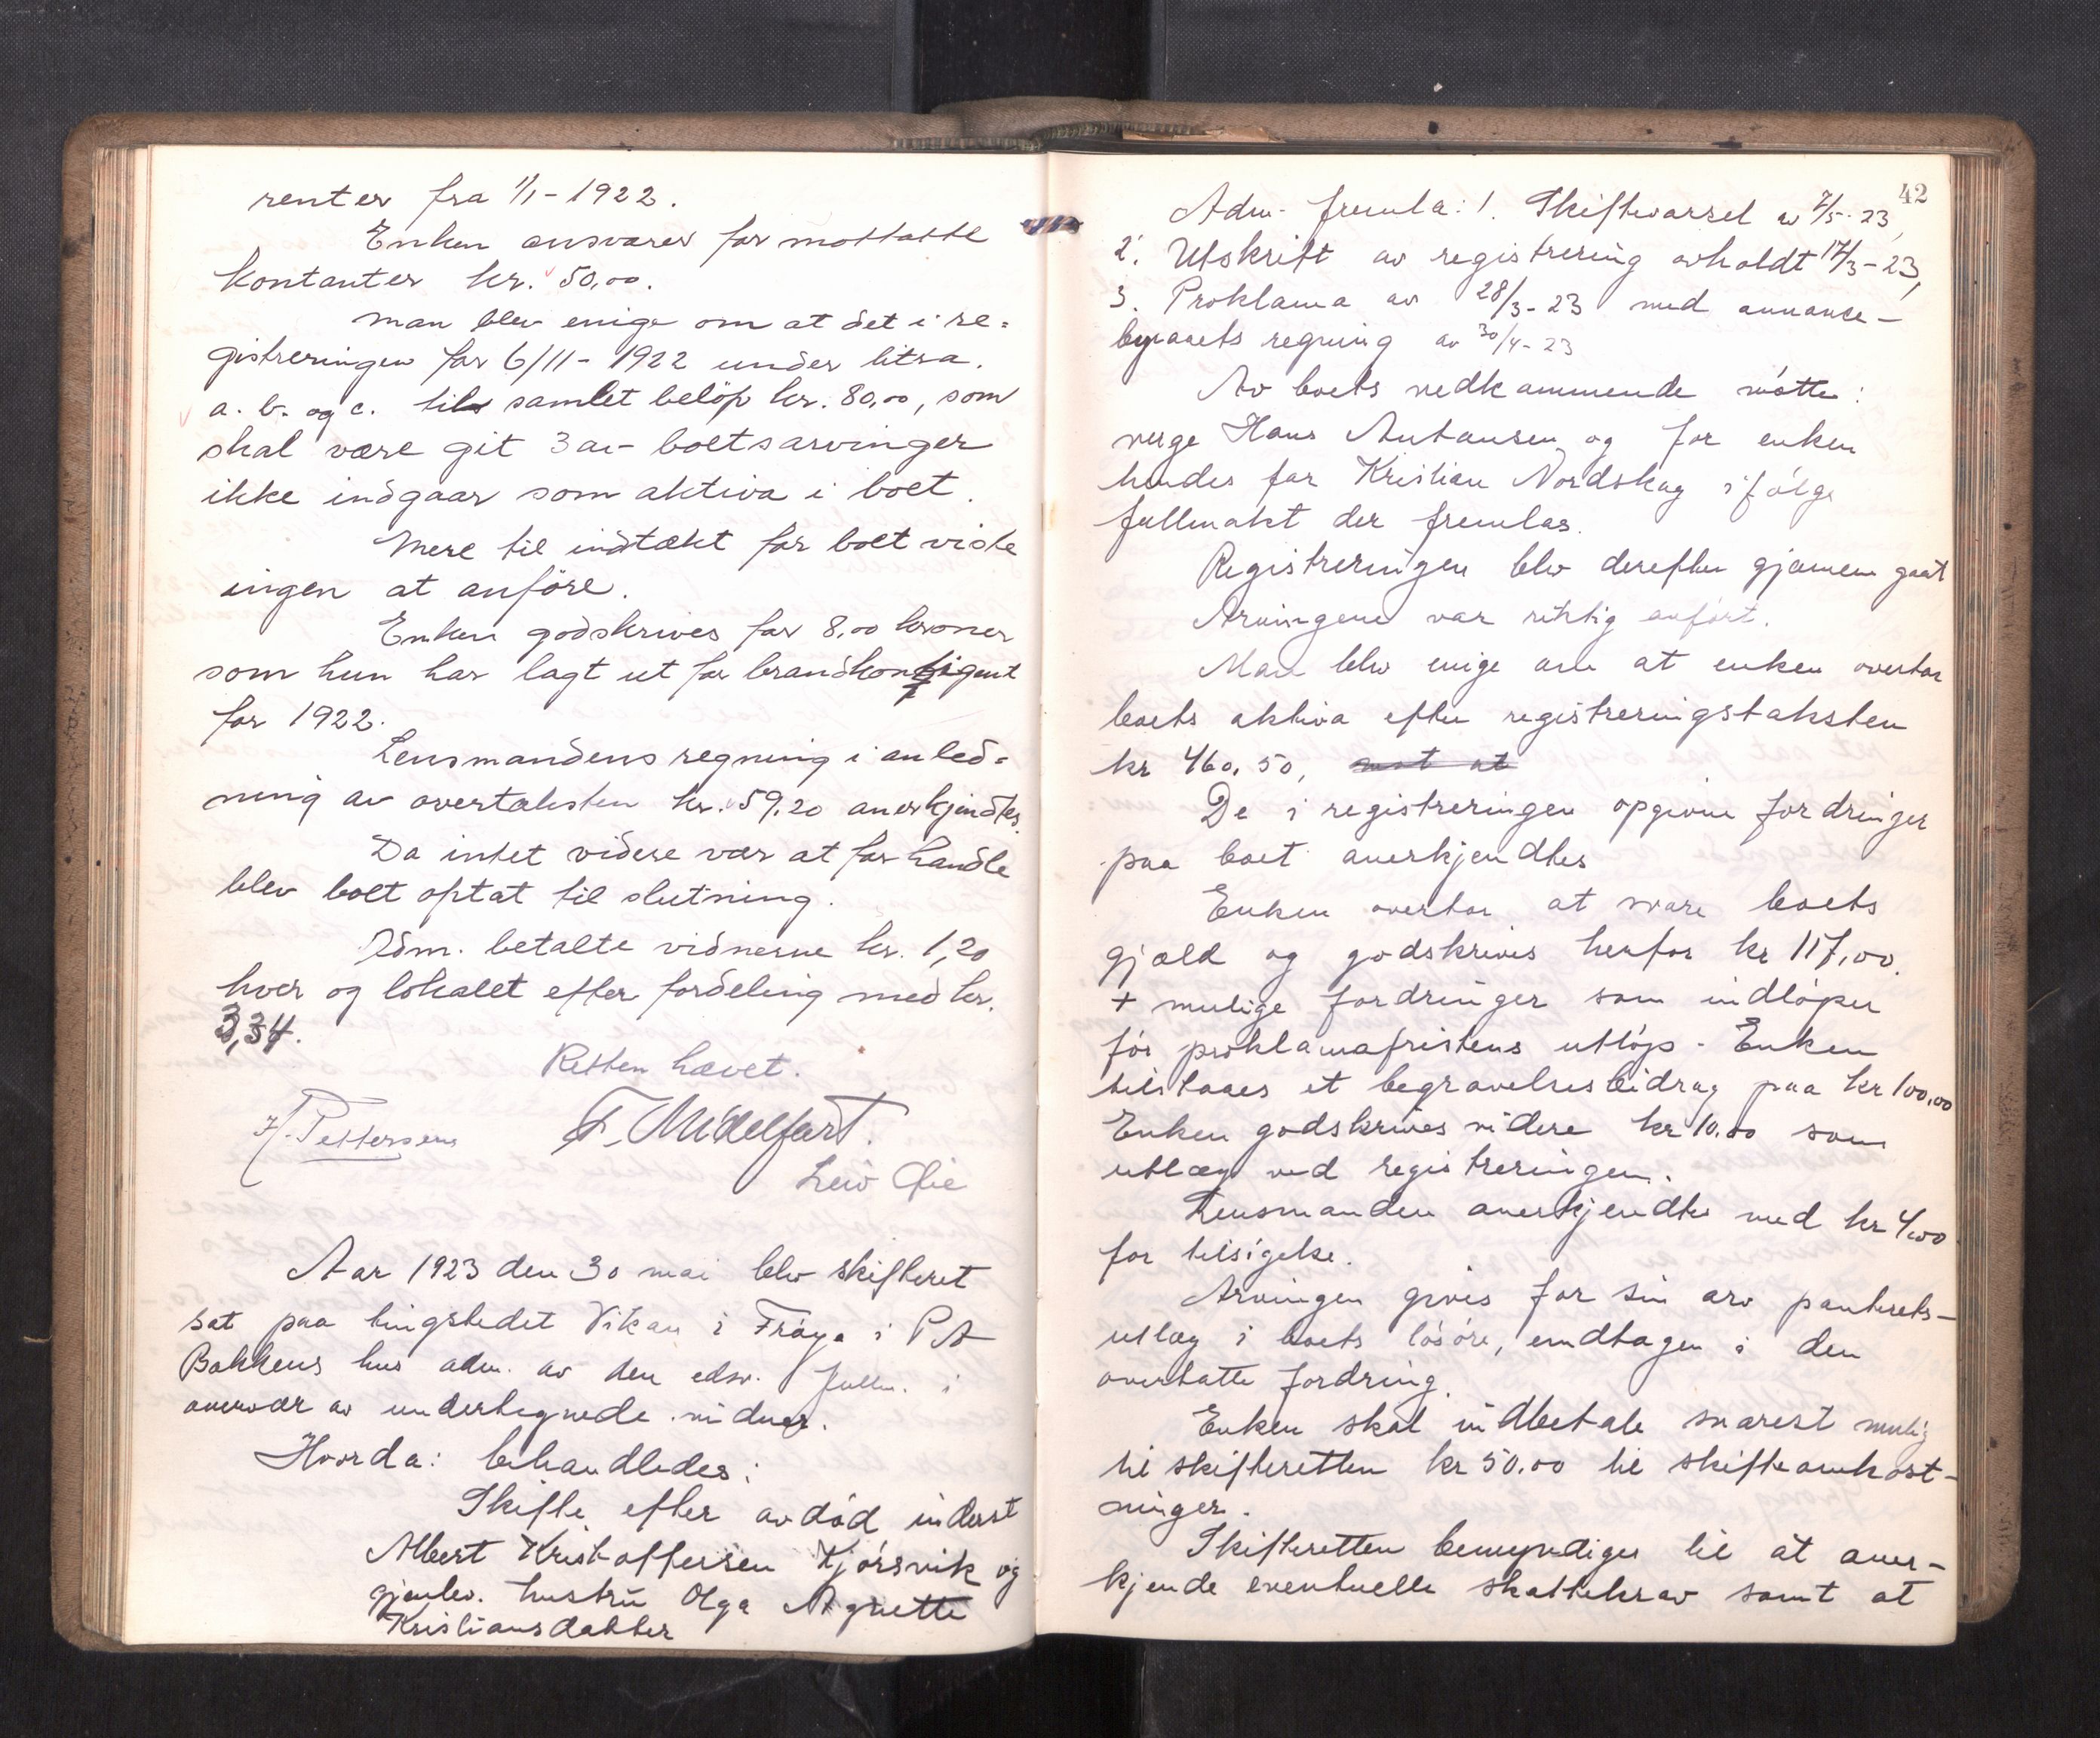 renter fra 1/1 - 1922.
Enken ansvarer for mottatte
kontanter kr. 50,00.
Man blev enige om at det i re=
gistreringen for 6/11 - 1922 under litra.
a. b. og c. til samlet beløp kr. 80,00, som
skal være git 3 av boets arvinger
ikke indgaar som aktiva i boet.
Mere til indtækt for boet viste
ingen at anföre.
Enken godskrives for 8,00 kroner
som hun har lagt ut for brandkontigent
for 1922.
Lensmandens regning i anled=
ning av overtaksten kr. 59,20 anerkjendtes.
Da intet videre var at forhandle
blev boet optat til slutning.
Adm. betalte vidnerne kr. 1,20
hver og lokalet efter fordeling med kr.
3,34.
Retten hævet.
H. Pettersen F. Midelfart.
Leiv Øie
Aar 1923 den 30 mai blev skifteret
sat paa tingstedet Vikan i Frøya i P A
Bakkens hus adm. av den edsv. fullm. i
overvær av undertegnede vidner.
Hvorda: behandledes:
Skifte efter avdød inderst
Albert Kristoffersen Kjørsvik og
gjenlev. hustru Olga Agnette
Kristiansdatter
42
Adm. fremla: 1. Skiftevarsel av 7/5-23,
2. Utskrift av registrering avholdt 17/3-23,
3. Proklama av 28/3-23 med annonce-
byraaets regning av 30/4-23
Av boets vedkommende møtte:
verge Hans Antonsen og for enken
hendes far Kristian Nordskag ifølge
fullmakt der fremlas.
Registreringen blev derefter gjennemgaat
Arvingene var riktig anført.
Man blev enige om at enken overtar
boets aktiva efter registreringstaksten
kr 460,50, mot at
De i registreringen opgivne fordringer
paa boet anerkjendtes
Enken overtar at svare boets
gjæld og godskrives herfor kr 117,00.
+ mulige fordringer som indløper
før proklamafristens utløp. Enken
tilstaaes et begravelsesbidrag paa kr 100,00
Enken godskrives videre kr 10.00 som
utlæg ved registreringen.
Lensmanden anerkjendtes med kr 4,00
for tilsigelse.
Arvingen gives for sin arv panterets-
utlæg i boets løsøre, undtagen i den
overtatte fordring.
Enken skal indbetale snarest mulig
til skifteretten kr 50.00 til skifteomkost-
ninger.
Skifteretten bemyndiges til at aner-
kjende eventuelle skattekrav samt at